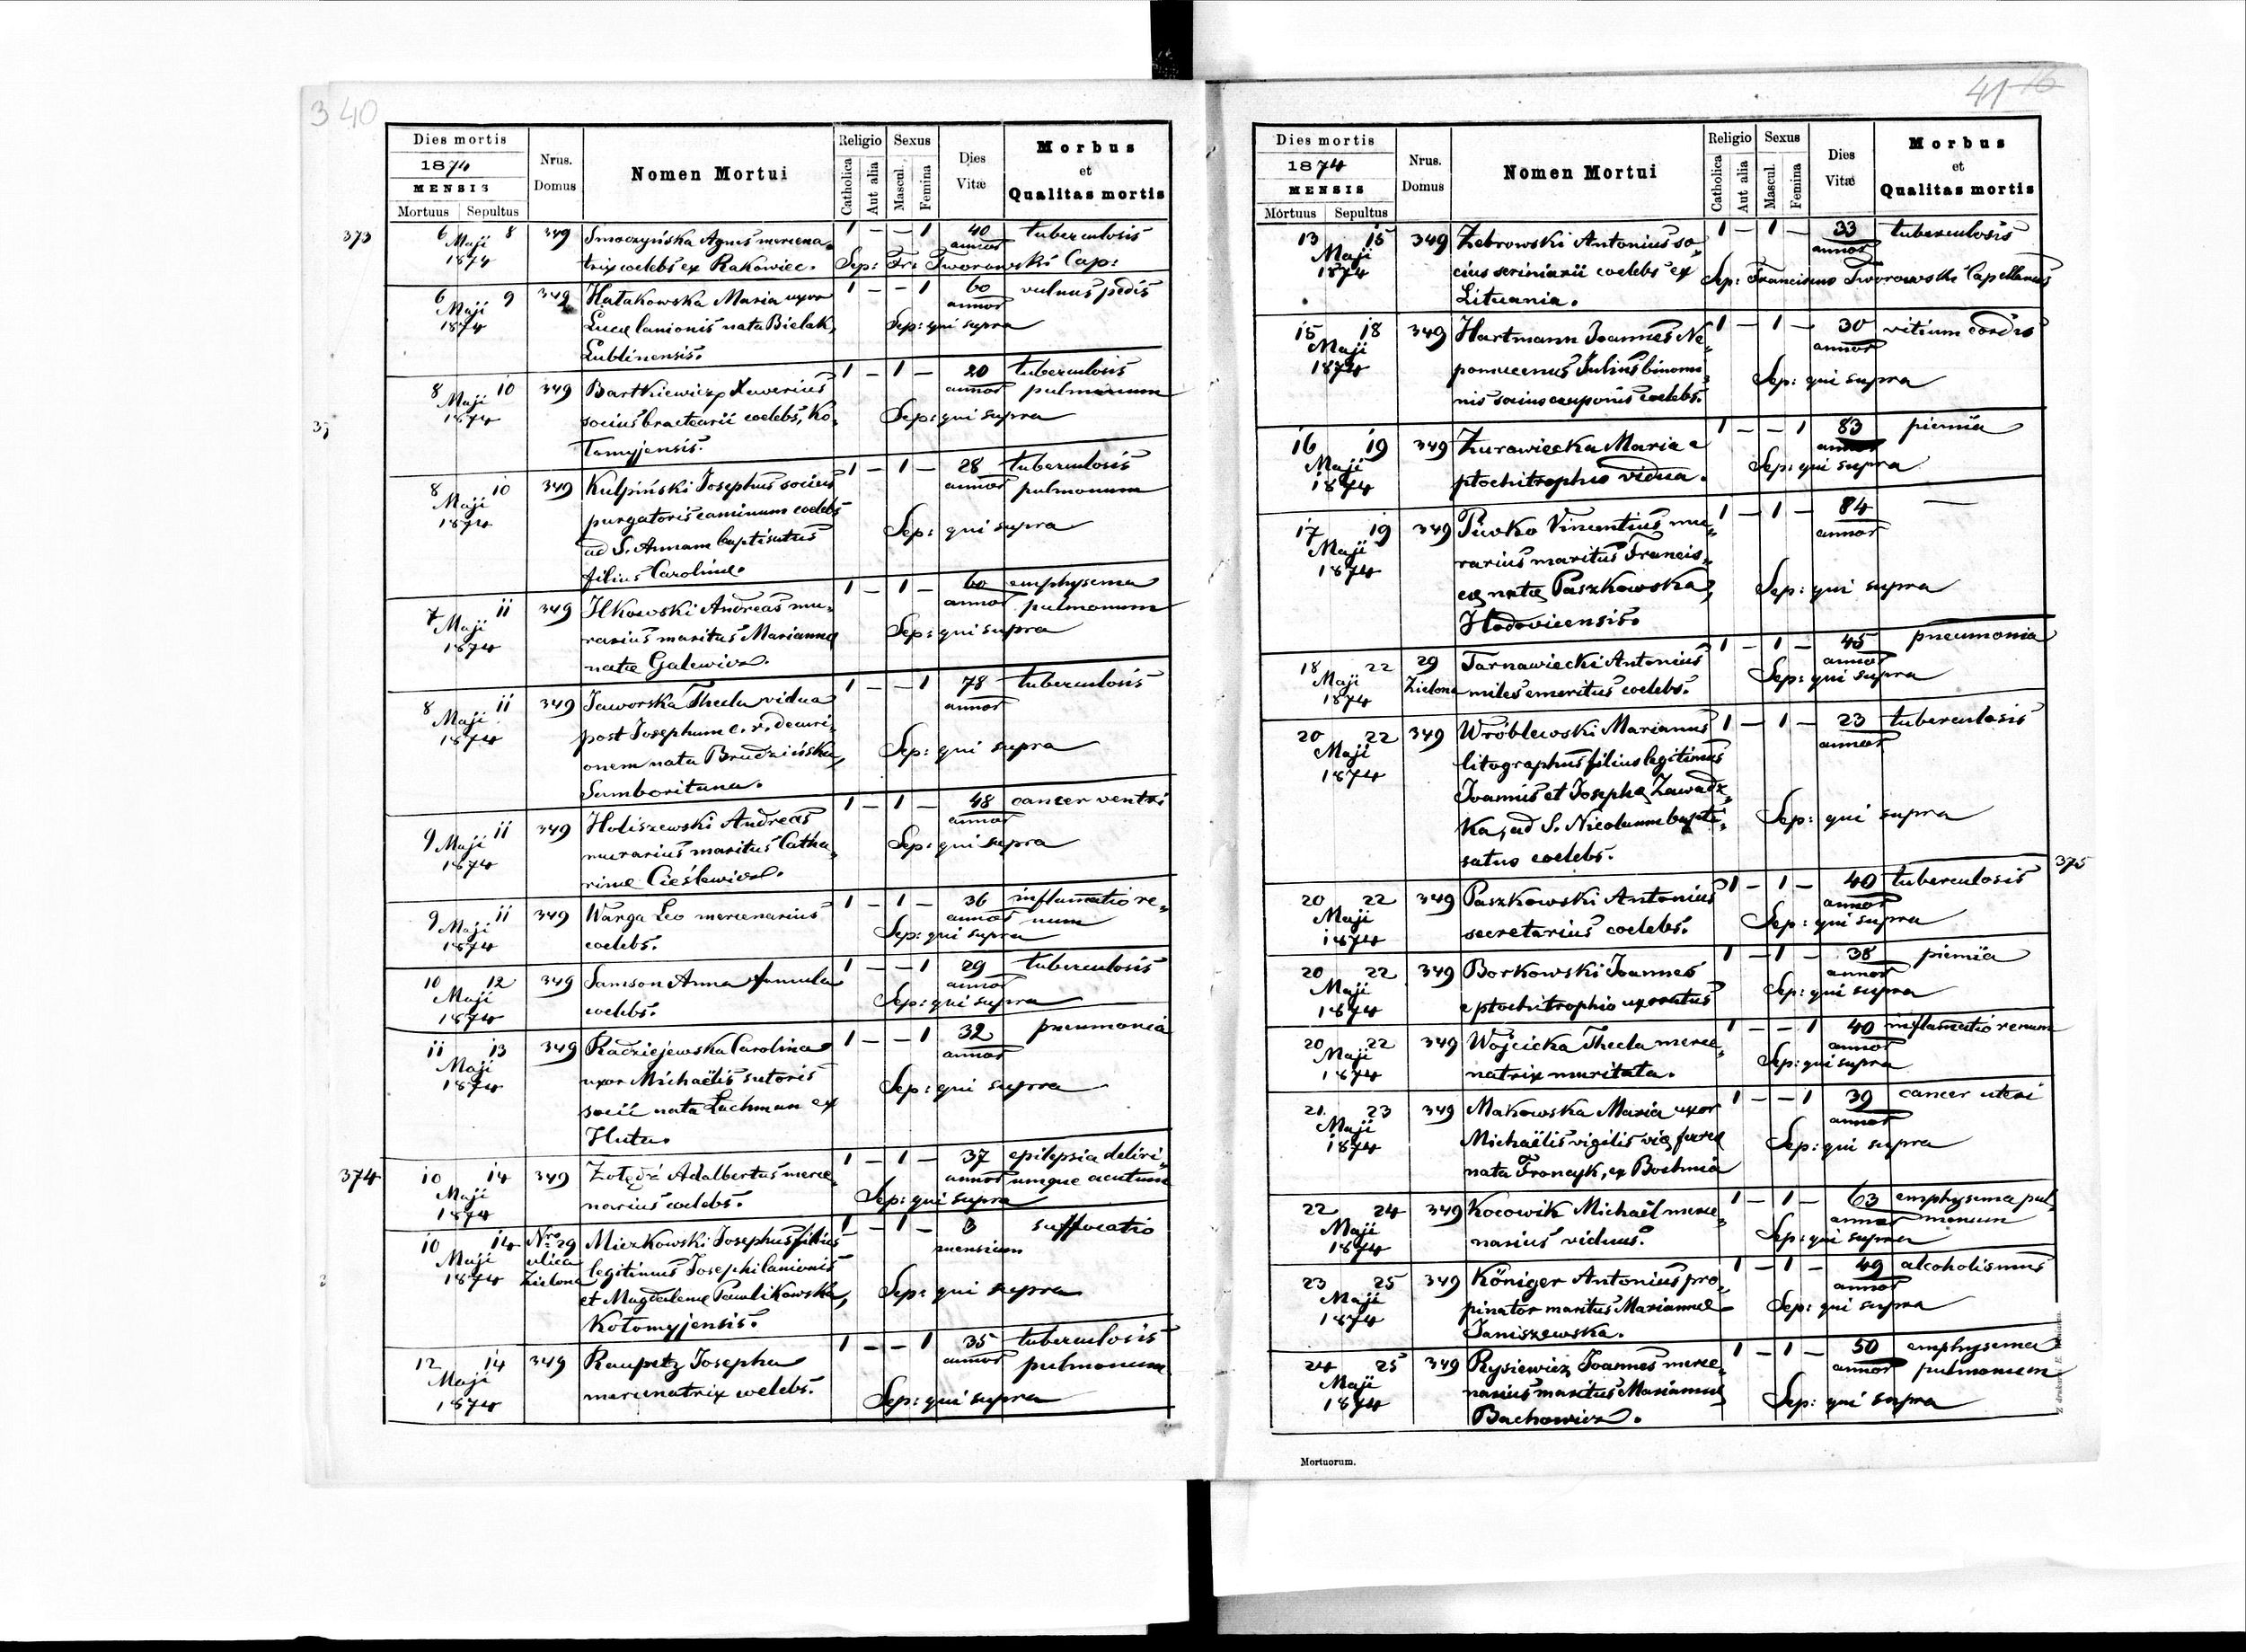 3 40
Dies mortis
1874
MENSIS
Mortuus Sepultus
Nrus.
Domus
Nomen Mortui
Religio
Catholica
Aut alia
Sexus
Mascul.
Femina
Dies
Vitæ
Morbus
et
Qualitas mortis
373
6 Maji 8 349 Smoczyńska Agnes mercena- 1 – – 1 40 tuberculosis
1874 trix coelebs ex Rakowiec. annor
Sep: Fr: Tworowski Cap:
6 Maji 9 349 Hatakowska Maria uxor 1 – – 1 60 vulnus pedis
1874 Lucæ lanionis nata Bielak, annor
Lublinensis. Sep: qui supra
8 Maji 10 349 Bartkiewicz Xaverius 1 – 1 – 20 tuberculosis
1874 socius bractearii coelebs, Ko- annor pulmonum
lomyjensis. Sep: qui supra
8 Maji 10 349 Kulpiński Josephus socius 1 – 1 – 28 tuberculosis
1874 purgatoris caminum coelebs annor pulmonum
ad S. Annam baptisatus Sep: qui supra
filius Carolinæ.
7 Maji 11 349 Ilkowski Andreas mu- 1 – 1 – 60 emphysema
1874 rarius maritus Mariannæ annor pulmonum
natæ Galewicz. Sep: qui supra
8 Maji 11 349 Jaworska Thecla vidua 1 – – 1 78 tuberculosis
1874 post Josephum c. r. decuri- annor
onem nata Brudzińska, Sep: qui supra
Samboritana.
9 Maji 11 349 Holiszewski Andreas 1 – 1 – 48 cancer ventri
1874 murarius maritus Catha- annor
rinæ Cieślewicz. Sep: qui supra
9 Maji 11 349 Warga Leo mercenarius 1 – 1 – 36 inflamatio re-
1874 coelebs. annor num
Sep: qui supra
10 Maji 12 349 Samson Anna famula 1 – – 1 29 tuberculosis
1874 coelebs. annor
Sep: qui supra
11 Maji 13 349 Radziejewska Carolina 1 – – 1 32 pneumonia
1874 uxor Michaëlis sutoris annor
socii nata Lachman ex Sep: qui supra
Huta.
374
10 Maji 14 349 Żołędź Adalbertus merce- 1 – 1 – 37 epilepsia deliri-
1874 narius coelebs. annor umque acutum
Sep: qui supra
10 Maji 14 Nro 29 Miezkowski Josephus filius 1 – 1 – 3 suffocatio
1874 ulica Zielona legitimus Josephi lanionis mensium
et Magdalenæ Pawlikowska, Sep: qui supra
Kołomyjensis.
12 Maji 14 349 Raupetz Josepha 1 – – 1 35 tuberculosis
1874 mercenatrix coelebs. annor pulmonum
Sep: qui supra
41 16
Dies mortis
1874
MENSIS
Mórtuus Sepultus
Nrus.
Domus
Nomen Mortui
Religio
Catholica
Aut alia
Sexus
Mascul.
Femina
Dies
Vitæ
Morbus
et
Qualitas mortis
13 Maji 15 349 Żebrowski Antonius so- 1 – 1 – 33 tuberculosis
1874 cius scriniarii coelebs ex annor
Lituania. Sep: Franciscus Tworowski Capellanus
15 Maji 18 349 Hartmann Joannes Ne- 1 – 1 – 30 vitium cordis
1874 pomucenus Julius binomi- annor
nis socius cauponis coelebs. Sep: qui supra
16 Maji 19 349 Żurowiecka Maria e 1 – – 1 83 piemia
1874 ptochotrophio vidua. annor
Sep: qui supra
17 Maji 19 349 Piwko Vincentius mu- 1 – 1 – 84 —
1874 rarius maritus Francis- annor
cæ natæ Paszkowska, Sep: qui supra
Hodovicensis.
18 Maji 22 29 Zielona Tarnawiecki Antonius 1 – 1 – 45 pneumonia
1874 miles emeritus coelebs. annor
Sep: qui supra
20 Maji 22 349 Wróblewski Marianus 1 – 1 – 23 tuberculosis
1874 litographus filius legitimus annor
Joannis et Josephæ Zawadz-
ka, ad S. Nicolaum bapti- Sep: qui supra
satus coelebs.
375
20 Maji 22 349 Paszkowski Antonius 1 – 1 – 40 tuberculosis
1874 secretarius coelebs. annor
Sep: qui supra
20 Maji 22 349 Borkowski Joannes 1 – 1 – 38 piemia
1874 e ptochitrophio uxoratus annor
Sep: qui supra
20 Maji 22 349 Wojcicka Thecla merce- 1 – – 1 40 inflamatio renum
1874 natrix maritata. annor
Sep: qui supra
21 Maji 23 349 Makowska Maria uxor 1 – – 1 39 cancer uteri
1874 Michaëlis vigilis viæ ferreæ annor
nata Fronczyk, ex Bochnia Sep: qui supra
22 Maji 24 349 Kocowik Michaël merce- 1 – 1 – 63 emphysema pul-
1874 narius viduus. annor monum
Sep: qui supra
23 Maji 25 349 Königer Antonius pro- 1 – 1 – 49 alcoholismus
1874 pinator maritus Mariannæ annor
Janiszewska. Sep: qui supra
24 Maji 25 349 Rysiewicz Joannes merce- 1 – 1 – 50 emphysema
1874 narius maritus Mariannæ annor pulmonum
Bachowicz. Sep: qui supra
Mortuorum.